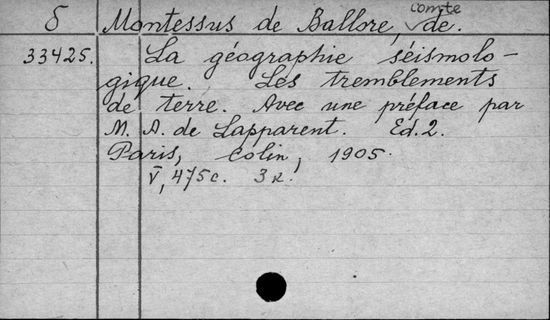 δ Montessus de Ballore, comte de.
33425. La géographie séismolo-
gique. Les tremblements
de terre. Avec une préface par
M. A. de Lapparent. Ed. 2.
Paris, Colin, 1905.
V, 475 c. 3 к.